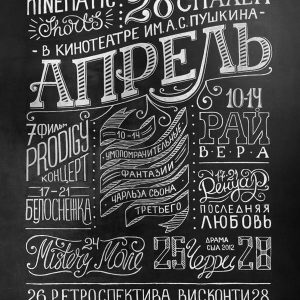 KINEMATIC
Shorts
28
В КИНОТЕАТРЕ ИМ.А.С.ПУШКИНА
АПРЕЛЬ
7 ФИЛЬМ
PRODIGY
КОНЦЕРТ
17-21
БЕЛОСНЕЖКА
10-14
УМОПОМРАЧИТЕЛЬНЫЕ
ФАНТАЗИИ
ЧАРЛЬЗА СВОНА
ТРЕТЬЕГО
10-14
РАЙ
ВЕРА
17-21
Ренуар
ПОСЛЕДНЯЯ
ЛЮБОВЬ
24
25
ДРАМА
США 2012
Черри
28
26 РЕТРОСПЕКТИВА ВИСКОНТИ 28